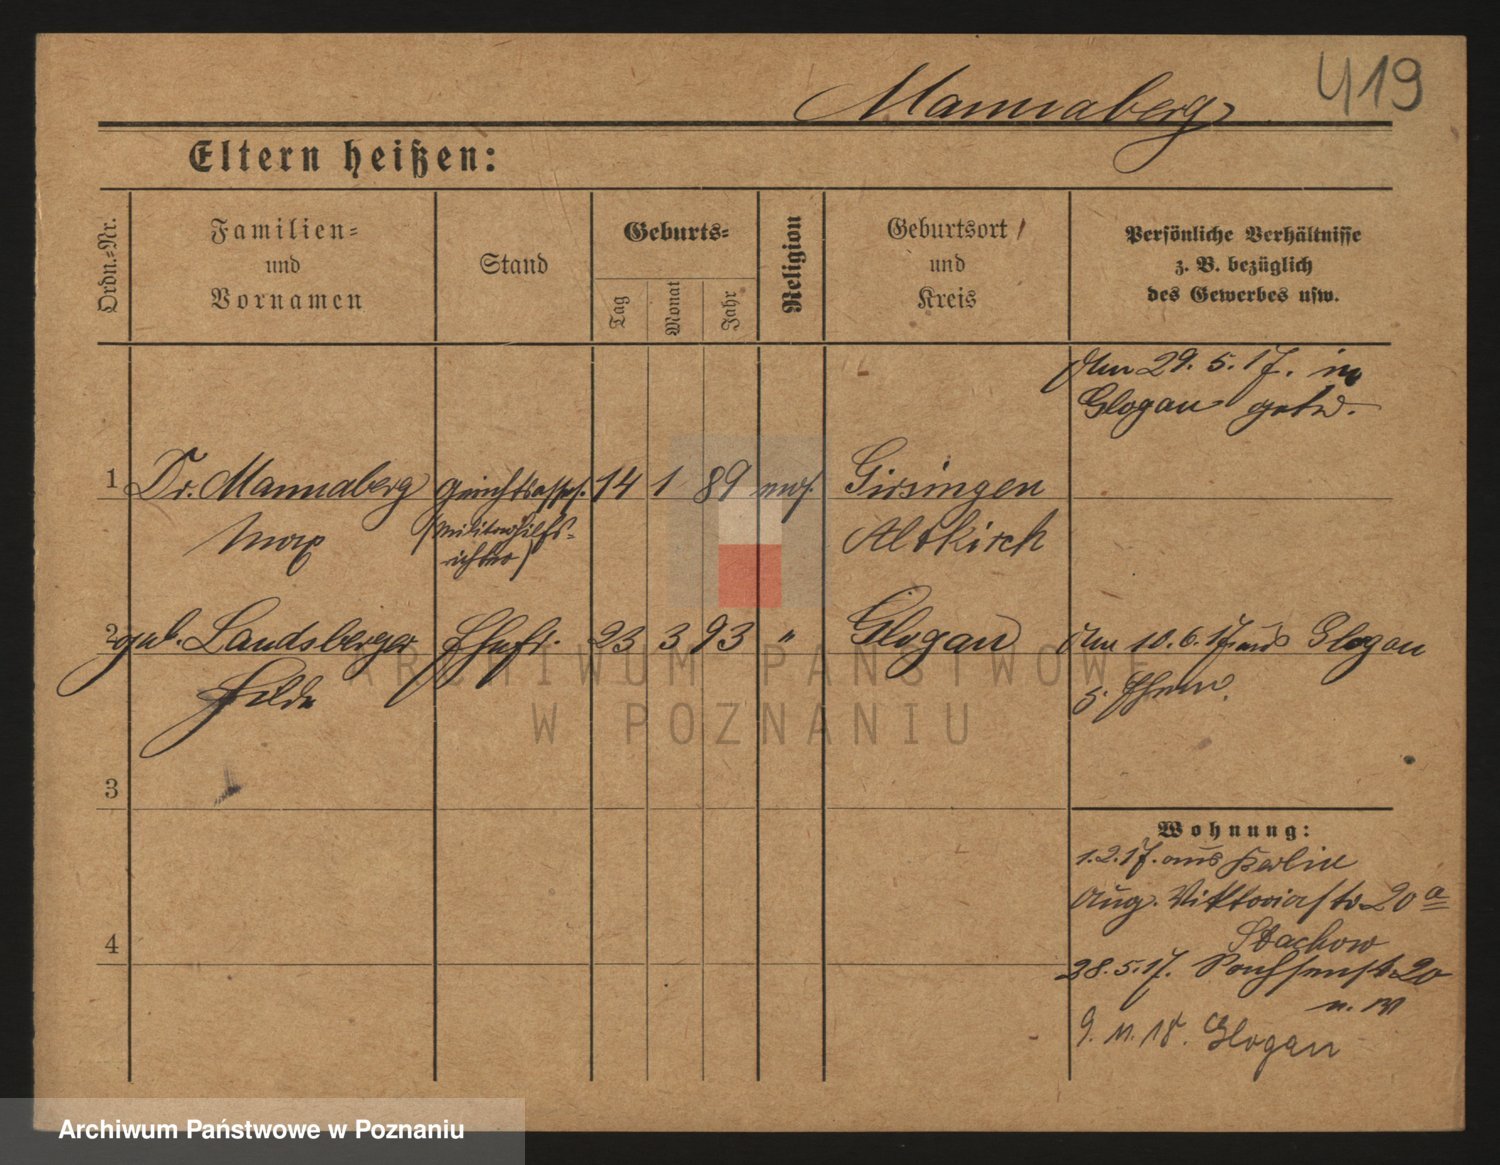 419
Mannaberg
Eltern heißen:
Ordn.-Nr.
Familien-
und
Vornamen
Stand
Geburts-
Tag
Monat
Jahr
Religion
Geburtsort
und
Kreis
Persönliche Verhältnisse
z. B. bezüglich
des Gewerbes usw.
Am 29. 5. 17. in
Glogau getr.
1 Dr. Mannaberg Gerichtsassess. 14 1 89 mos. Girsingen
Max (Militärhilfs- Altkirch
richter)
2 geb. Landsberger Ehefr. 23 3 93 " Glogau Am 10. 6. 17 aus Glogau
Hilde z. Ehem.
3
Wohnung:
1. 2. 17. aus Berlin
Aug. Viktoriastr 20 a
Stachow
4
28. 5. 17. 20
9. 11. 18. Glogau
ARCHIWUM PAŃSTWOWE
W POZNANIU
Archiwum Państwowe w Poznaniu